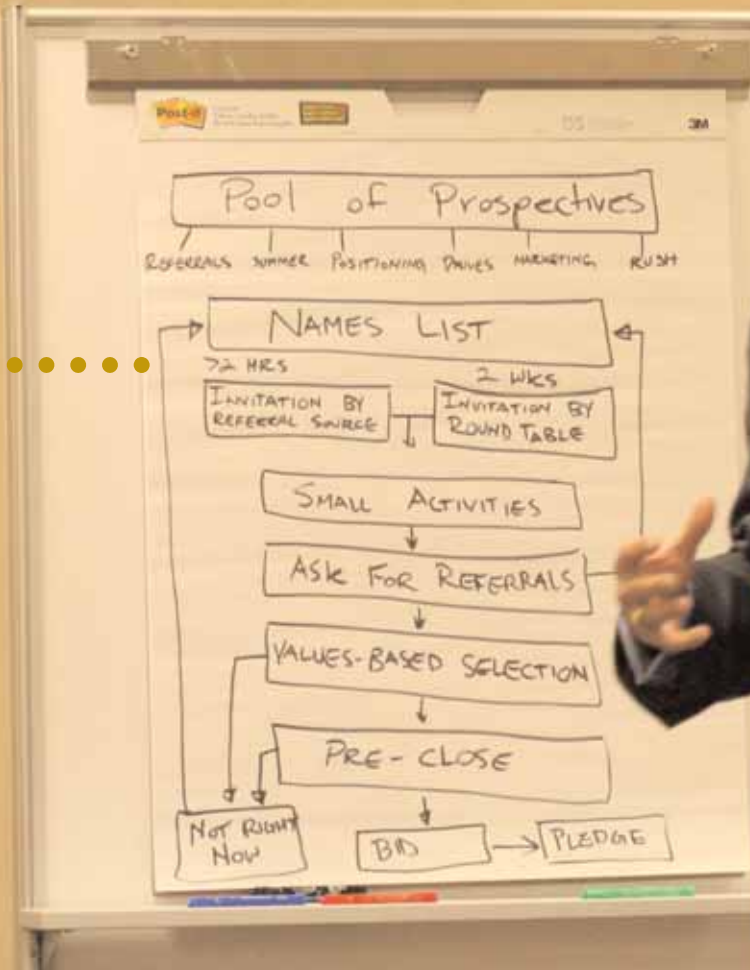 Post-it
3M
Pool of Prospectives
REFERRALS SUMMER POSITIONING DRIVES MARKETING RUSH
NAMES LIST
>2 HRS
2 WKS
INVITATION BY
REFERRAL SOURCE
INVITATION BY
ROUND TABLE
SMALL ACTIVITIES
ASK FOR REFERRALS
VALUES-BASED SELECTION
PRE-CLOSE
NOT RIGHT
NOW
BID
PLEDGE